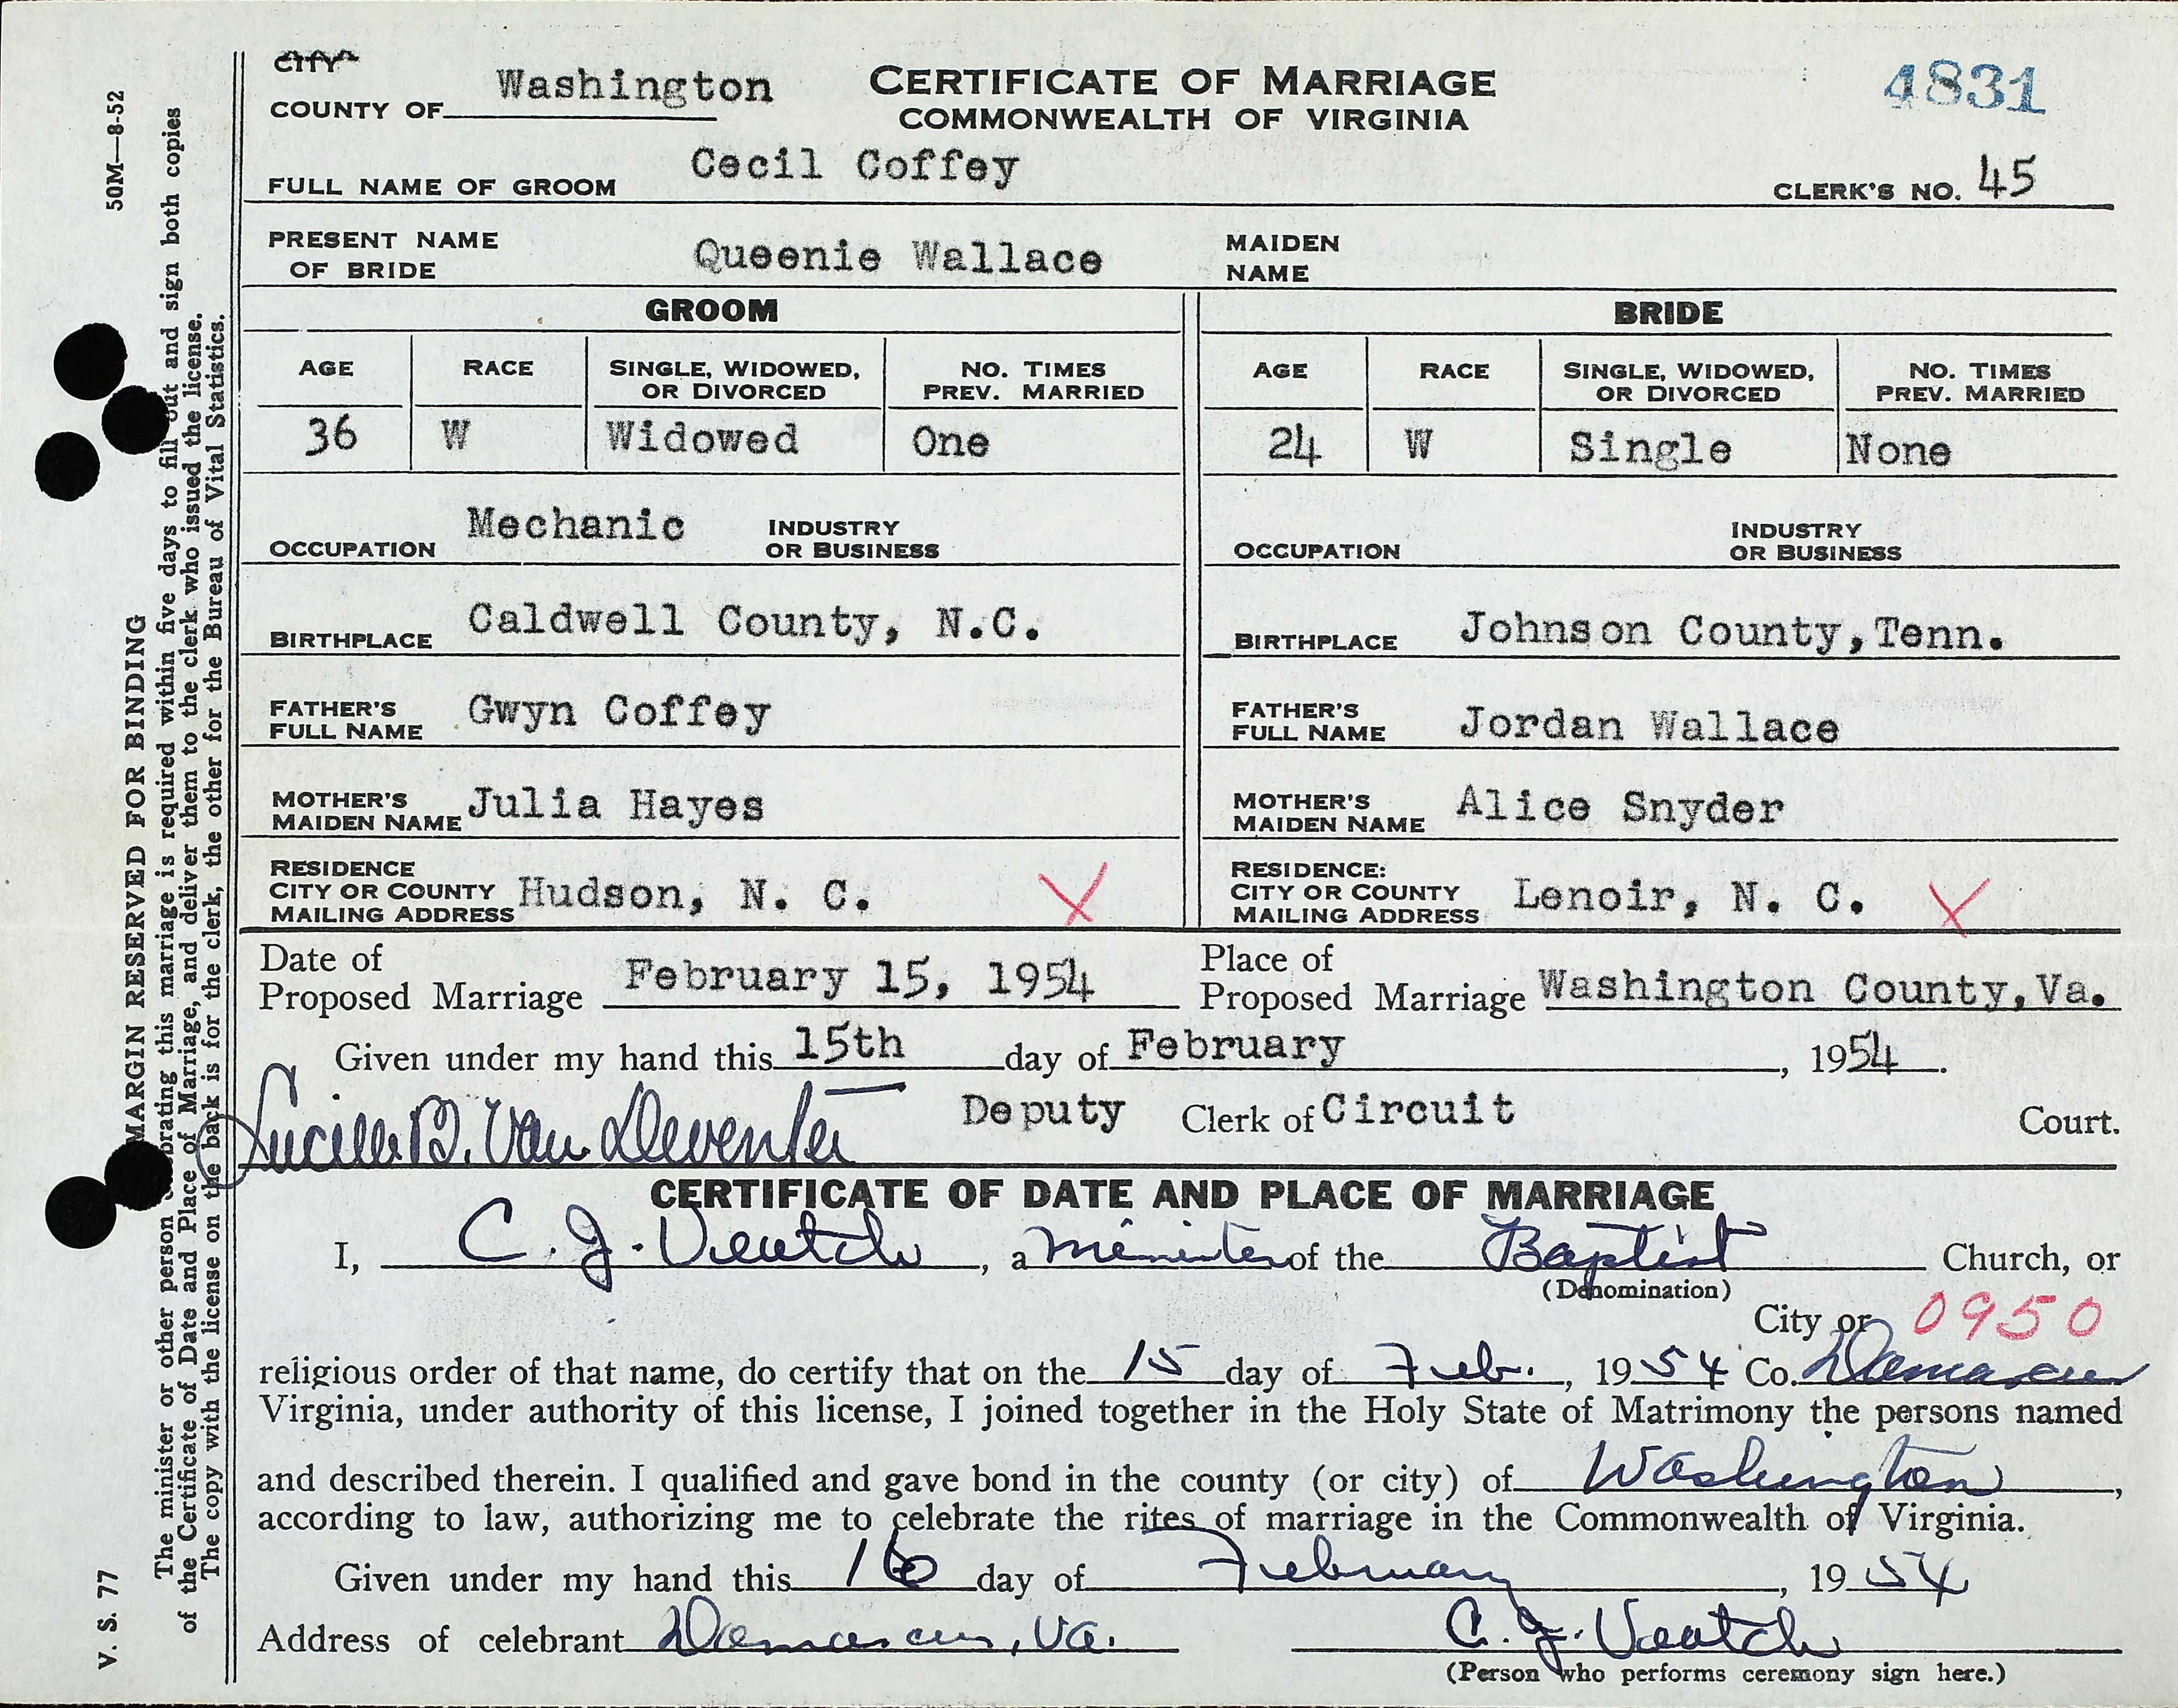 CITY
COUNTY OF Washington
CERTIFICATE OF MARRIAGE
COMMONWEALTH OF VIRGINIA
4831
FULL NAME OF GROOM Cecil Coffey
CLERK'S NO. 45
PRESENT NAME OF BRIDE Queenie Wallace
MAIDEN NAME
GROOM
BRIDE
AGE RACE SINGLE, WIDOWED, OR DIVORCED NO. TIMES PREV. MARRIED
AGE RACE SINGLE, WIDOWED, OR DIVORCED NO. TIMES PREV. MARRIED
36 W Widowed One
24 W Single None
OCCUPATION Mechanic INDUSTRY OR BUSINESS
OCCUPATION INDUSTRY OR BUSINESS
BIRTHPLACE Caldwell County, N.C.
BIRTHPLACE Johnson County, Tenn.
FATHER'S FULL NAME Gwyn Coffey
FATHER'S FULL NAME Jordan Wallace
MOTHER'S MAIDEN NAME Julia Hayes
MOTHER'S MAIDEN NAME Alice Snyder
RESIDENCE CITY OR COUNTY MAILING ADDRESS Hudson, N. C. X
RESIDENCE: CITY OR COUNTY MAILING ADDRESS Lenoir, N. C. X
Date of Proposed Marriage February 15, 1954
Place of Proposed Marriage Washington County, Va.
Given under my hand this 15th day of February, 1954.
Lucille B. Van Deventer Deputy Clerk of Circuit Court.
CERTIFICATE OF DATE AND PLACE OF MARRIAGE
I, C. J. Veatch, a Minister of the Baptist Church, or
(Denomination)
City or 0950
religious order of that name, do certify that on the 15 day of Feb., 1954 Co. Damascus
Virginia, under authority of this license, I joined together in the Holy State of Matrimony the persons named
and described therein. I qualified and gave bond in the county (or city) of Washington,
according to law, authorizing me to celebrate the rites of marriage in the Commonwealth of Virginia.
Given under my hand this 16 day of February, 1954
Address of celebrant Damascus, Va. C. J. Veatch
(Person who performs ceremony sign here.)
V. S. 77
MARGIN RESERVED FOR BINDING
50M—8-52
The minister or other person celebrating this marriage is required within five days to fill out and sign both copies
of the Certificate of Date and Place of Marriage, and deliver them to the clerk who issued the license.
The copy with the license on the back is for the clerk, the other for the Bureau of Vital Statistics.